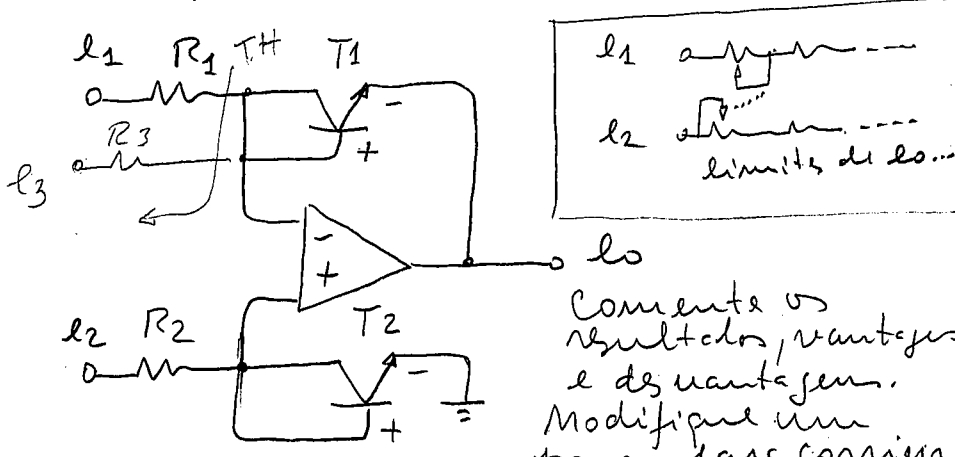 e1 R1 TH T1
-
+
e3 R3
-
+
e2 R2 T2
-
+
eo
e1
e2
limites de eo...
Comente os
resultados, vantagens
e desvantagens.
Modifique um